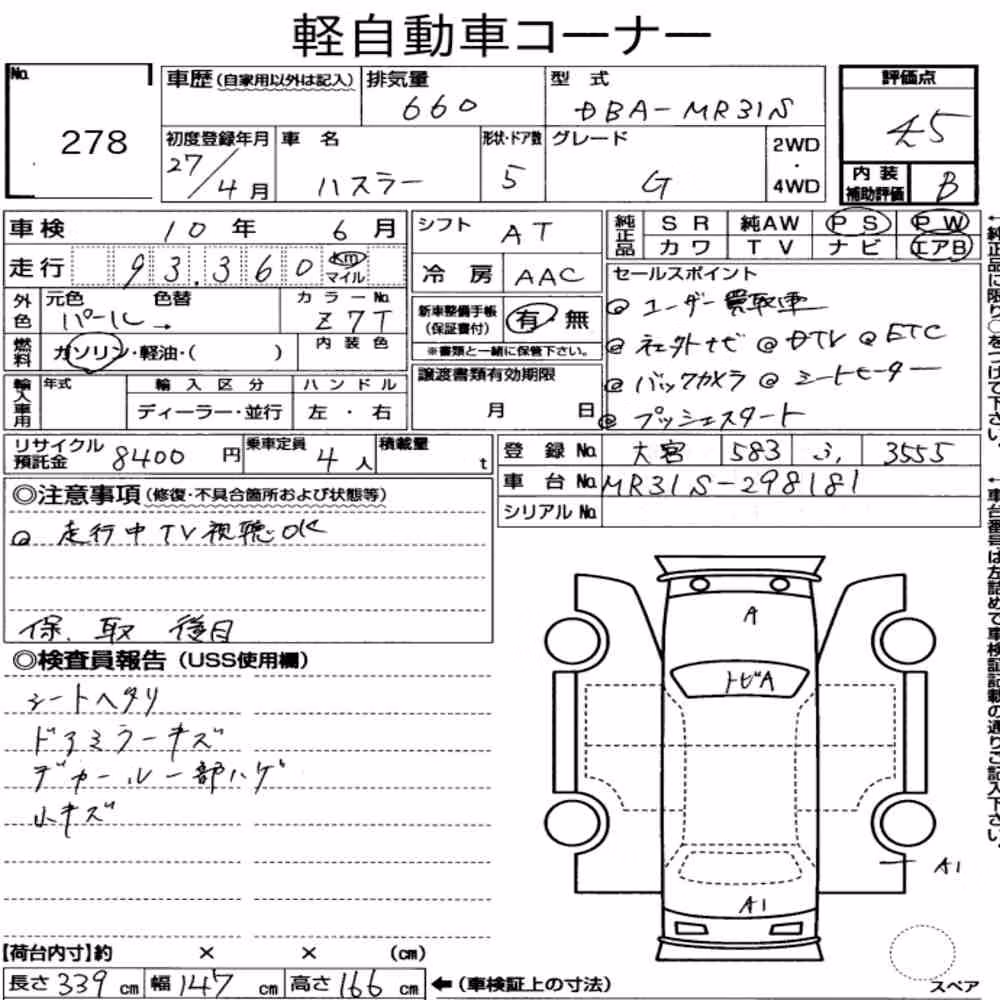 軽自動車コーナー
No. 278
車歴(自家用以外は記入) 排気量 660 型式 DBA-MR31S 評価点 4.5
初度登録年月 27/4月 車名 ハスラー 形状・ドア数 5 グレード G 2WD・4WD 内装補助評価 B
車検 10年 6月 シフト AT 純正品 SR 純AW PS PW
走行 93,360 km マイル 冷房 AAC カワ TV ナビ エアB
外色 元色 パール→ 色替 カラーNo. Z7T 内装色
新車整備手帳(保証書付) 有・無
※書類と一緒に保管下さい。
セールスポイント
@ ユーザー買取車
@ 社外ナビ @ DTV @ ETC
@ バックカメラ @ シートヒーター
@ プッシュスタート
燃料 ガソリン・軽油・( )
輸入車用 年式 輸入区分 ディーラー・並行 ハンドル 左・右
譲渡書類有効期限 月 日
リサイクル預託金 8400円 乗車定員 4人 積載量 t
登録No. 大宮 583 う, 3555
車台No. MR31S-298181
シリアルNo.
◎注意事項(修復・不具合箇所および状態等)
@ 走行中TV視聴OK
保、取 後日
◎検査員報告(USS使用欄)
シートヘタリ
ドアミラーキズ
デカール一部ハゲ
小キズ
A
トビA
A1
A1
スペア
【荷台内寸】約 × × (cm)
長さ 339 cm 幅 147 cm 高さ 166 cm ←(車検証上の寸法)
←純正品に限り○をつけて下さい。
←車台番号は左詰めで車検証記載の通りご記入下さい。